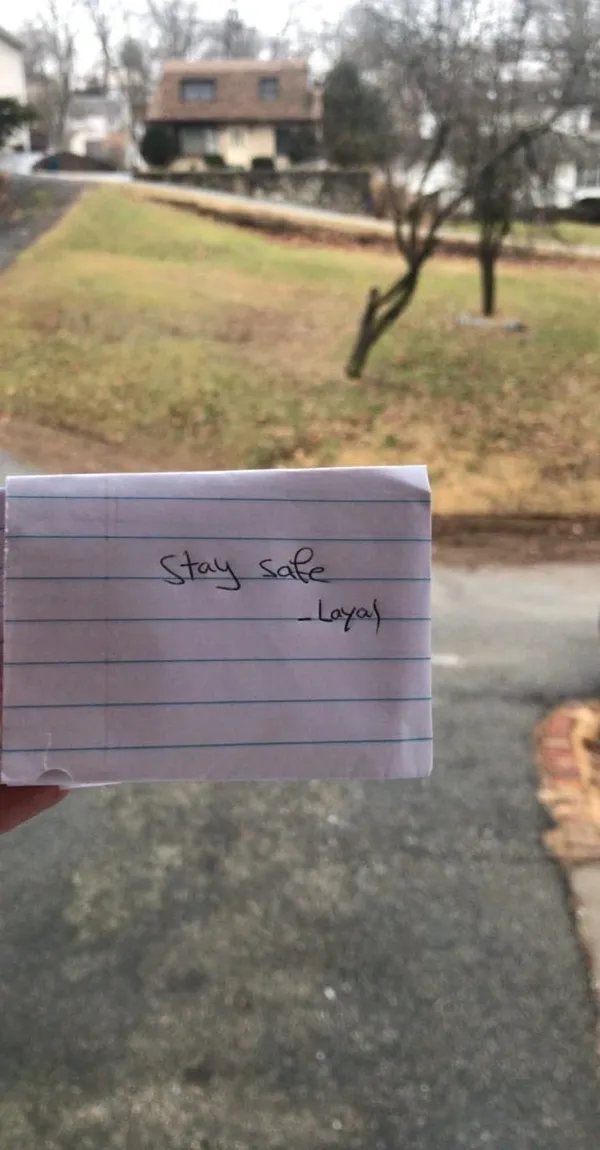 Stay safe
- Layal